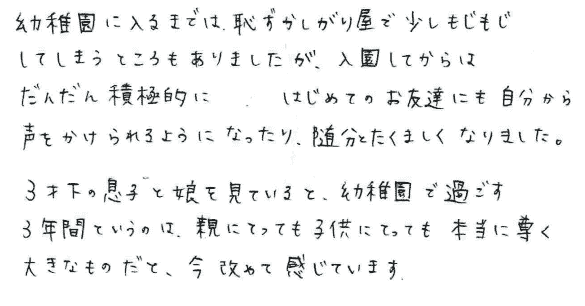 幼稚園に入るまでは、恥ずかしがり屋で少しもじもじ
してしまうところもありましたが、入園してからは
だんだん積極的に　　はじめてのお友達にも自分から
声をかけられるようになったり、随分とたくましくなりました。
3才下の息子と娘を見ていると、幼稚園で過ごす
3年間というのは、親にとっても子供にとっても本当に尊く
大きなものだと、今改めて感じています。